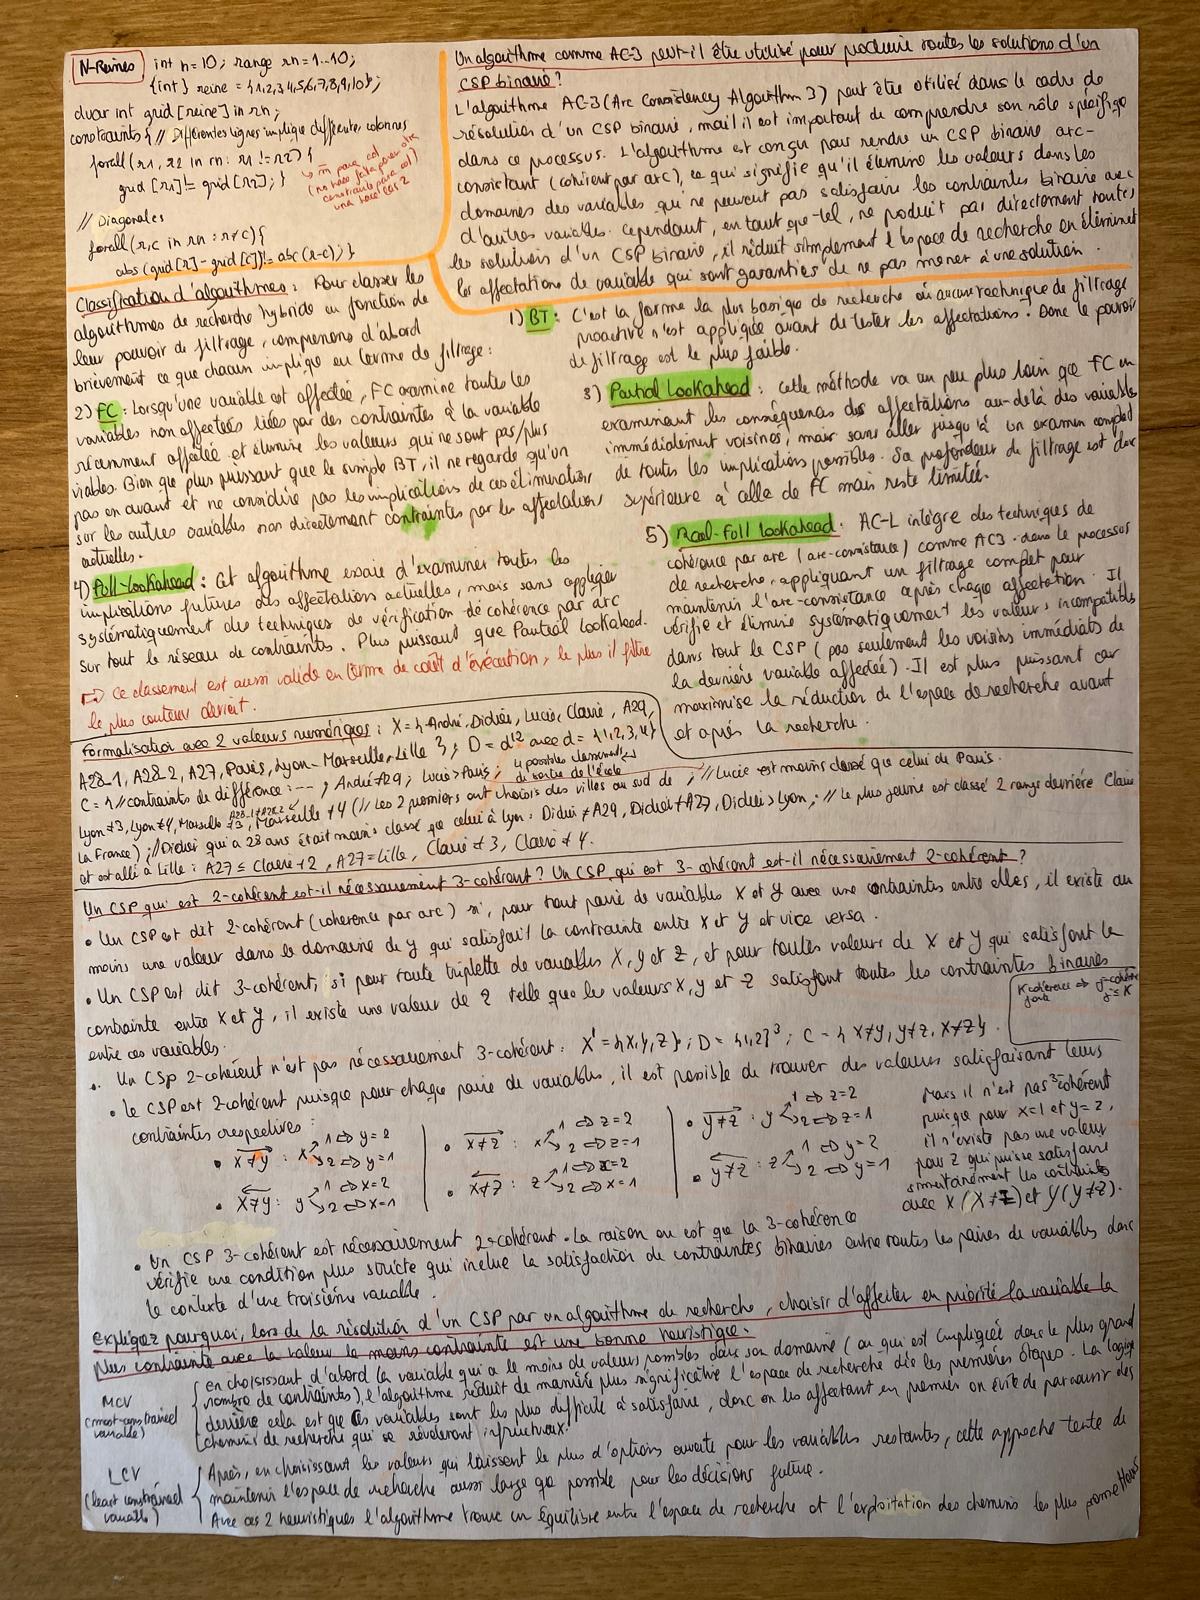 N-Reines int n=10; range rn=1..10;
{int} reine = {1,2,3,4,5,6,7,8,9,10};
dvar int grid[reine] in rn;
constraints{ // Différentes lignes implique différentes colonnes
forall(r1, r2 in rn: r1 != r2){
grid[r1] != grid[r2]; }
// Diagonales
forall(r,c in rn : r≠c){
abs(grid[r]-grid[c]) != abs(r-c);}}
Un algorithme comme AC-3 peut-il être utilisé pour produire toutes les solutions d'un
CSP binaire?
L'algorithme AC-3 (Arc Consistency Algorithm 3) peut être utilisé dans le cadre de
résolution d'un CSP binaire, mais il est important de comprendre son rôle spécifique
dans ce processus. L'algorithme est conçu pour rendre un CSP binaire arc-
consistant (cohérent par arc), ce qui signifie qu'il élimine les valeurs dans les
domaines des variables qui ne peuvent pas satisfaire les contraintes binaire avec
d'autres variables. Cependant, en tant que-tel, ne produit pas directement toutes
les solutions d'un CSP binaire, il réduit simplement l'espace de recherche en éliminant
les affectations de variable qui sont garanties de ne pas mener à une solution.
Classification d'algorithmes : Pour classer les
algorithmes de recherche hybride en fonction de
leur pouvoir de filtrage, comprenons d'abord
brièvement ce que chacun implique en terme de filtrage:
1) BT: C'est la forme la plus basique de recherche où aucune technique de filtrage
proactive n'est appliquée avant de tester les affectations. Donc le pouvoir
de filtrage est le plus faible.
2) FC : Lorsqu'une variable est affectée, FC examine toutes les
variables non affectées liées par des contraintes à la variable
récemment affectée et élimine les valeurs qui ne sont pas/plus
viables. Bien que plus puissant que le simple BT, il ne regarde qu'un
pas en avant et ne considère pas les implications de ces éliminations
sur les autres variables non directement contraintes par les affectations
actuelles.
3) Partial Lookahead : cette méthode va un peu plus loin que FC en
examinant les conséquences des affectations au-delà des variables
immédialement voisines, mais sans aller jusqu'à un examen complet
de toutes les implications possibles. Sa profondeur de filtrage est donc
supérieure à celle de FC mais reste limitée.
4) Full-Lookahead : Cet algorithme essaie d'examiner toutes les
implications futures des affectations actuelles, mais sans appliquer
systématiquement des techniques de vérification de cohérence par arc
sur tout le réseau de contraintes. Plus puissant que Partial Lookahead.
⇨ Ce classement est aussi valide en terme de coût d'exécution, le plus il filtre
le plus couteux devient.
5) Real-Full Lookahead: AC-L intègre des techniques de
cohérence par arc (arc-consistance) comme AC3 dans le processus
de recherche, appliquant un filtrage complet pour
maintenir l'arc-consistance après chaque affectation. Il
vérifie et élimine systématiquement les valeurs incompatibles
dans tout le CSP (pas seulement les voisins immédiats de
la dernière variable affectée). Il est plus puissant car
maximise la réduction de l'espace de recherche avant
et après la recherche.
Formalisation avec 2 valeurs numériques : X = { André, Didier, Lucie, Claire, A29,
A28-1, A28-2, A27, Paris, Lyon, Marseille, Lille }; D = d^12 avec d = {1,2,3,4}
4 possibles classements de sortie de l'école
C = { // contraints de différence: ---, André≠A29; Lucie>Paris; // Lucie est moins classé que celui de Paris.
Lyon≠3, Lyon≠4, Marseille≠3, Marseille≠4 (// Les 2 premiers ont choisis des villes au sud de
la France); //Didier qui a 28 ans était moins classé que celui à Lyon: Didier≠A29, Didier≠A27, Didier>Lyon; // le plus jeune est classé 2 rangs derrière Claire
et est allé à Lille : A27 = Claire+2, A27=Lille, Claire≠3, Claire≠4.
Un CSP qui est 2-cohérent est-il nécessairement 3-cohérent? Un CSP qui est 3-cohérent est-il nécessairement 2-cohérent?
• Un CSP est dit 2-cohérent (cohérence par arc) si, pour tout paire de variables X et Y avec une contraintes entre elles, il existe au
moins une valeur dans le domaine de Y qui satisfait la contrainte entre X et Y et vice versa.
• Un CSP est dit 3-cohérent, si pour toute triplette de variables X, Y et Z, et pour toutes valeurs de X et Y qui satisfont la
contrainte entre X et Y, il existe une valeur de Z telle que les valeurs X, Y et Z satisfont toutes les contraintes binaires
entre ces variables.
K cohérence forte ⇒ J-cohérence J≤K
∴ Un CSP 2-cohérent n'est pas nécessairement 3-cohérent: X = {X,Y,Z}; D = {1,2}³; C = { X≠Y, Y≠Z, X≠Z}.
• Le CSP est 2-cohérent puisque pour chaque paire de variables, il est possible de trouver des valeurs satisfaisant leurs
contraintes respectives :
• X≠Y : x 1 ⇔ y=2
2 ⇔ y=1
X≠Y : y 1 ⇔ x=2
2 ⇔ x=1
• X≠Z : x 1 ⇔ z=2
2 ⇔ z=1
• X≠Z : z 1 ⇔ x=2
2 ⇔ x=1
• Y≠Z : y 1 ⇔ z=2
2 ⇔ z=1
• Y≠Z : z 1 ⇔ y=2
2 ⇔ y=1
Mais il n'est pas 3-cohérent
puisque pour x=1 et y=2,
il n'existe pas une valeur
pour Z qui puisse satisfaire
simultanément les contraintes
avec X (X≠Z) et Y (Y≠Z).
• Un CSP 3-cohérent est nécessairement 2-cohérent. La raison en est que la 3-cohérence
vérifie une condition plus stricte qui inclue la satisfaction de contraintes binaires entre toutes les paires de variables dans
le contexte d'une troisième variable.
Expliquez pourquoi, lors de la résolution d'un CSP par un algorithme de recherche, choisir d'affecter en priorité la variable la
plus contrainte avec la valeur la moins contrainte est une bonne heuristique.
MCV
(most constrained
variable)
en choisissant d'abord la variable qui a le moins de valeurs possibles dans son domaine (ou qui est impliquée dans le plus grand
nombre de contraintes), l'algorithme réduit de manière plus significative l'espace de recherche dès les premières étapes. La logique
derrière cela est que ces variables sont les plus difficile à satisfaire, donc en les affectant en premier on évite de parcourir des
chemins de recherche qui se révèleront infructueux.
LCV
(least constrained
variable)
Après, en choisissant les valeurs qui laissent le plus d'options ouverte pour les variables restantes, cette approche tente de
maintenir l'espace de recherche aussi large que possible pour les décisions future.
Avec ces 2 heuristiques l'algorithme trouve un équilibre entre l'espace de recherche et l'exploitation des chemins les plus prometteurs